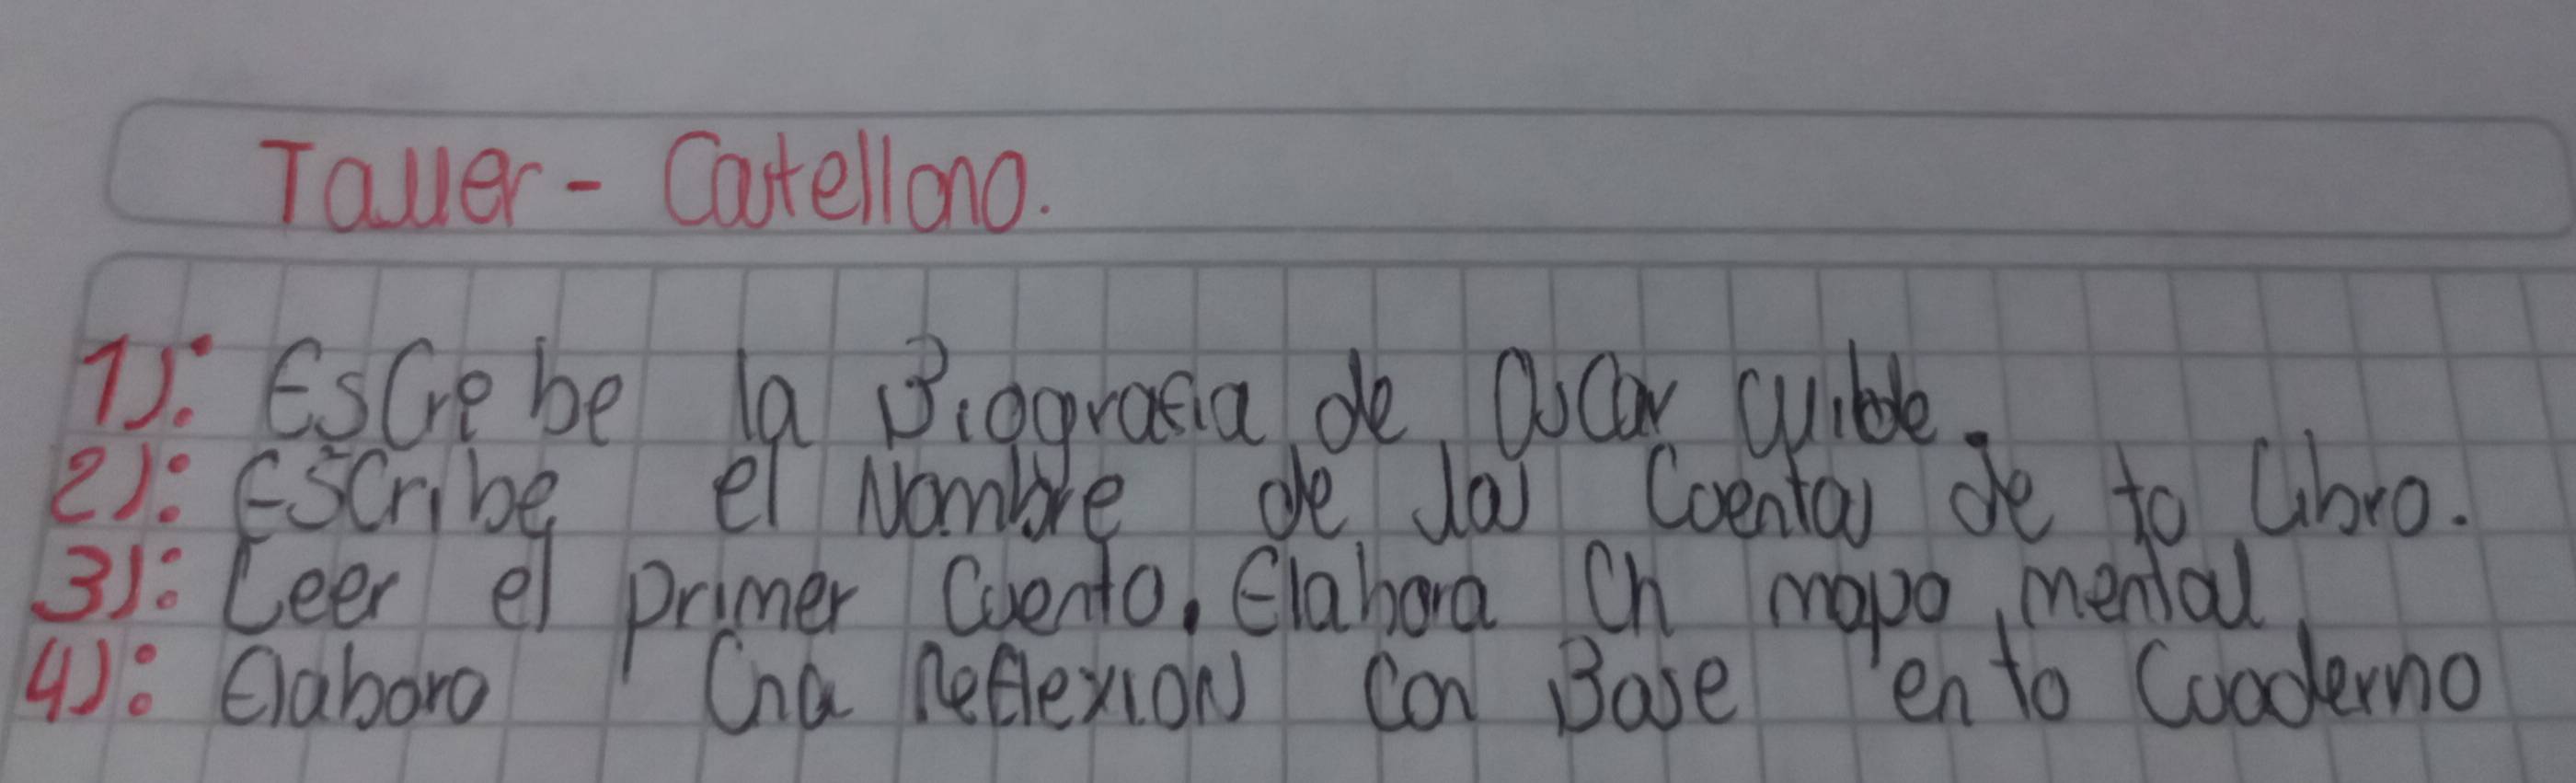 Taller - Castellano.
1): Escrebe la Biografia de Oscar Wilde.
2): Escribe el Nombre de las Coentas de to Libro.
3): Leer el primer Cuento. Elabora Un mapa mental
4): Elabora Una Reflexion Con Base en to Cuaderno